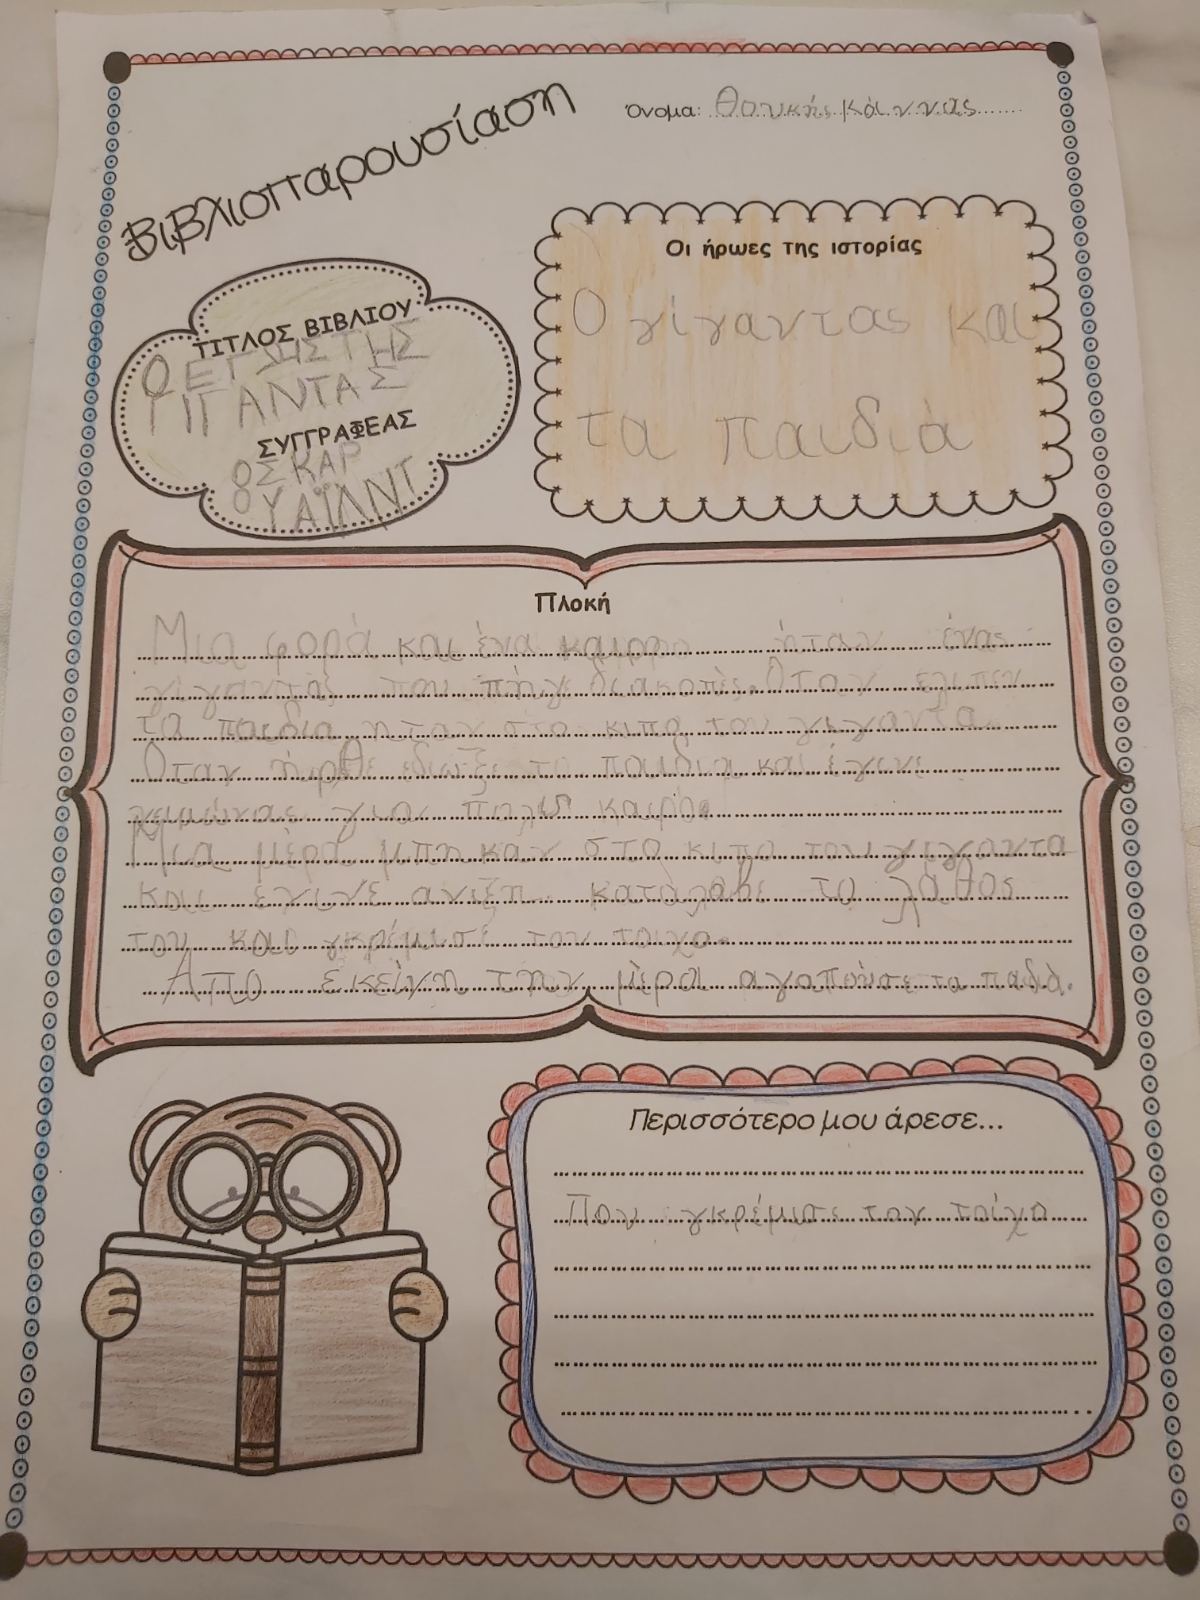 Βιβλιοπαρουσίαση
Όνομα: Θουκής Κάννας
ΤΙΤΛΟΣ ΒΙΒΛΙΟΥ
Ο ΕΓΩΙΣΤΗΣ
ΓΙΓΑΝΤΑΣ
ΣΥΓΓΡΑΦΕΑΣ
ΟΣΚΑΡ
ΟΥΑΪΛΝΤ
Οι ήρωες της ιστορίας
Ο γίγαντας και
τα παιδιά
Πλοκή
Μια φορά και ένα καιρρο ήταν ένας
γίγαντας που πήγε διακοπές. Όταν ελιπεν
τα παιδια ηταν στο κιπο του γιγαντα.
Όταν ήρθε έδιωξε τα παιδια και έγινε
χειμώνας για πολυ καιρό.
Μια μέρα μπηκαν στο κιπο του γιγαντα
και έγινε ανιξη κατάλαβε το λάθος
του και γκρέμισε τον τοιχο.
Απο εκείνη την μέρα αγαπούσε τα παδιά.
Περισσότερο μου άρεσε...
Που γκρέμισε τον τοίχο